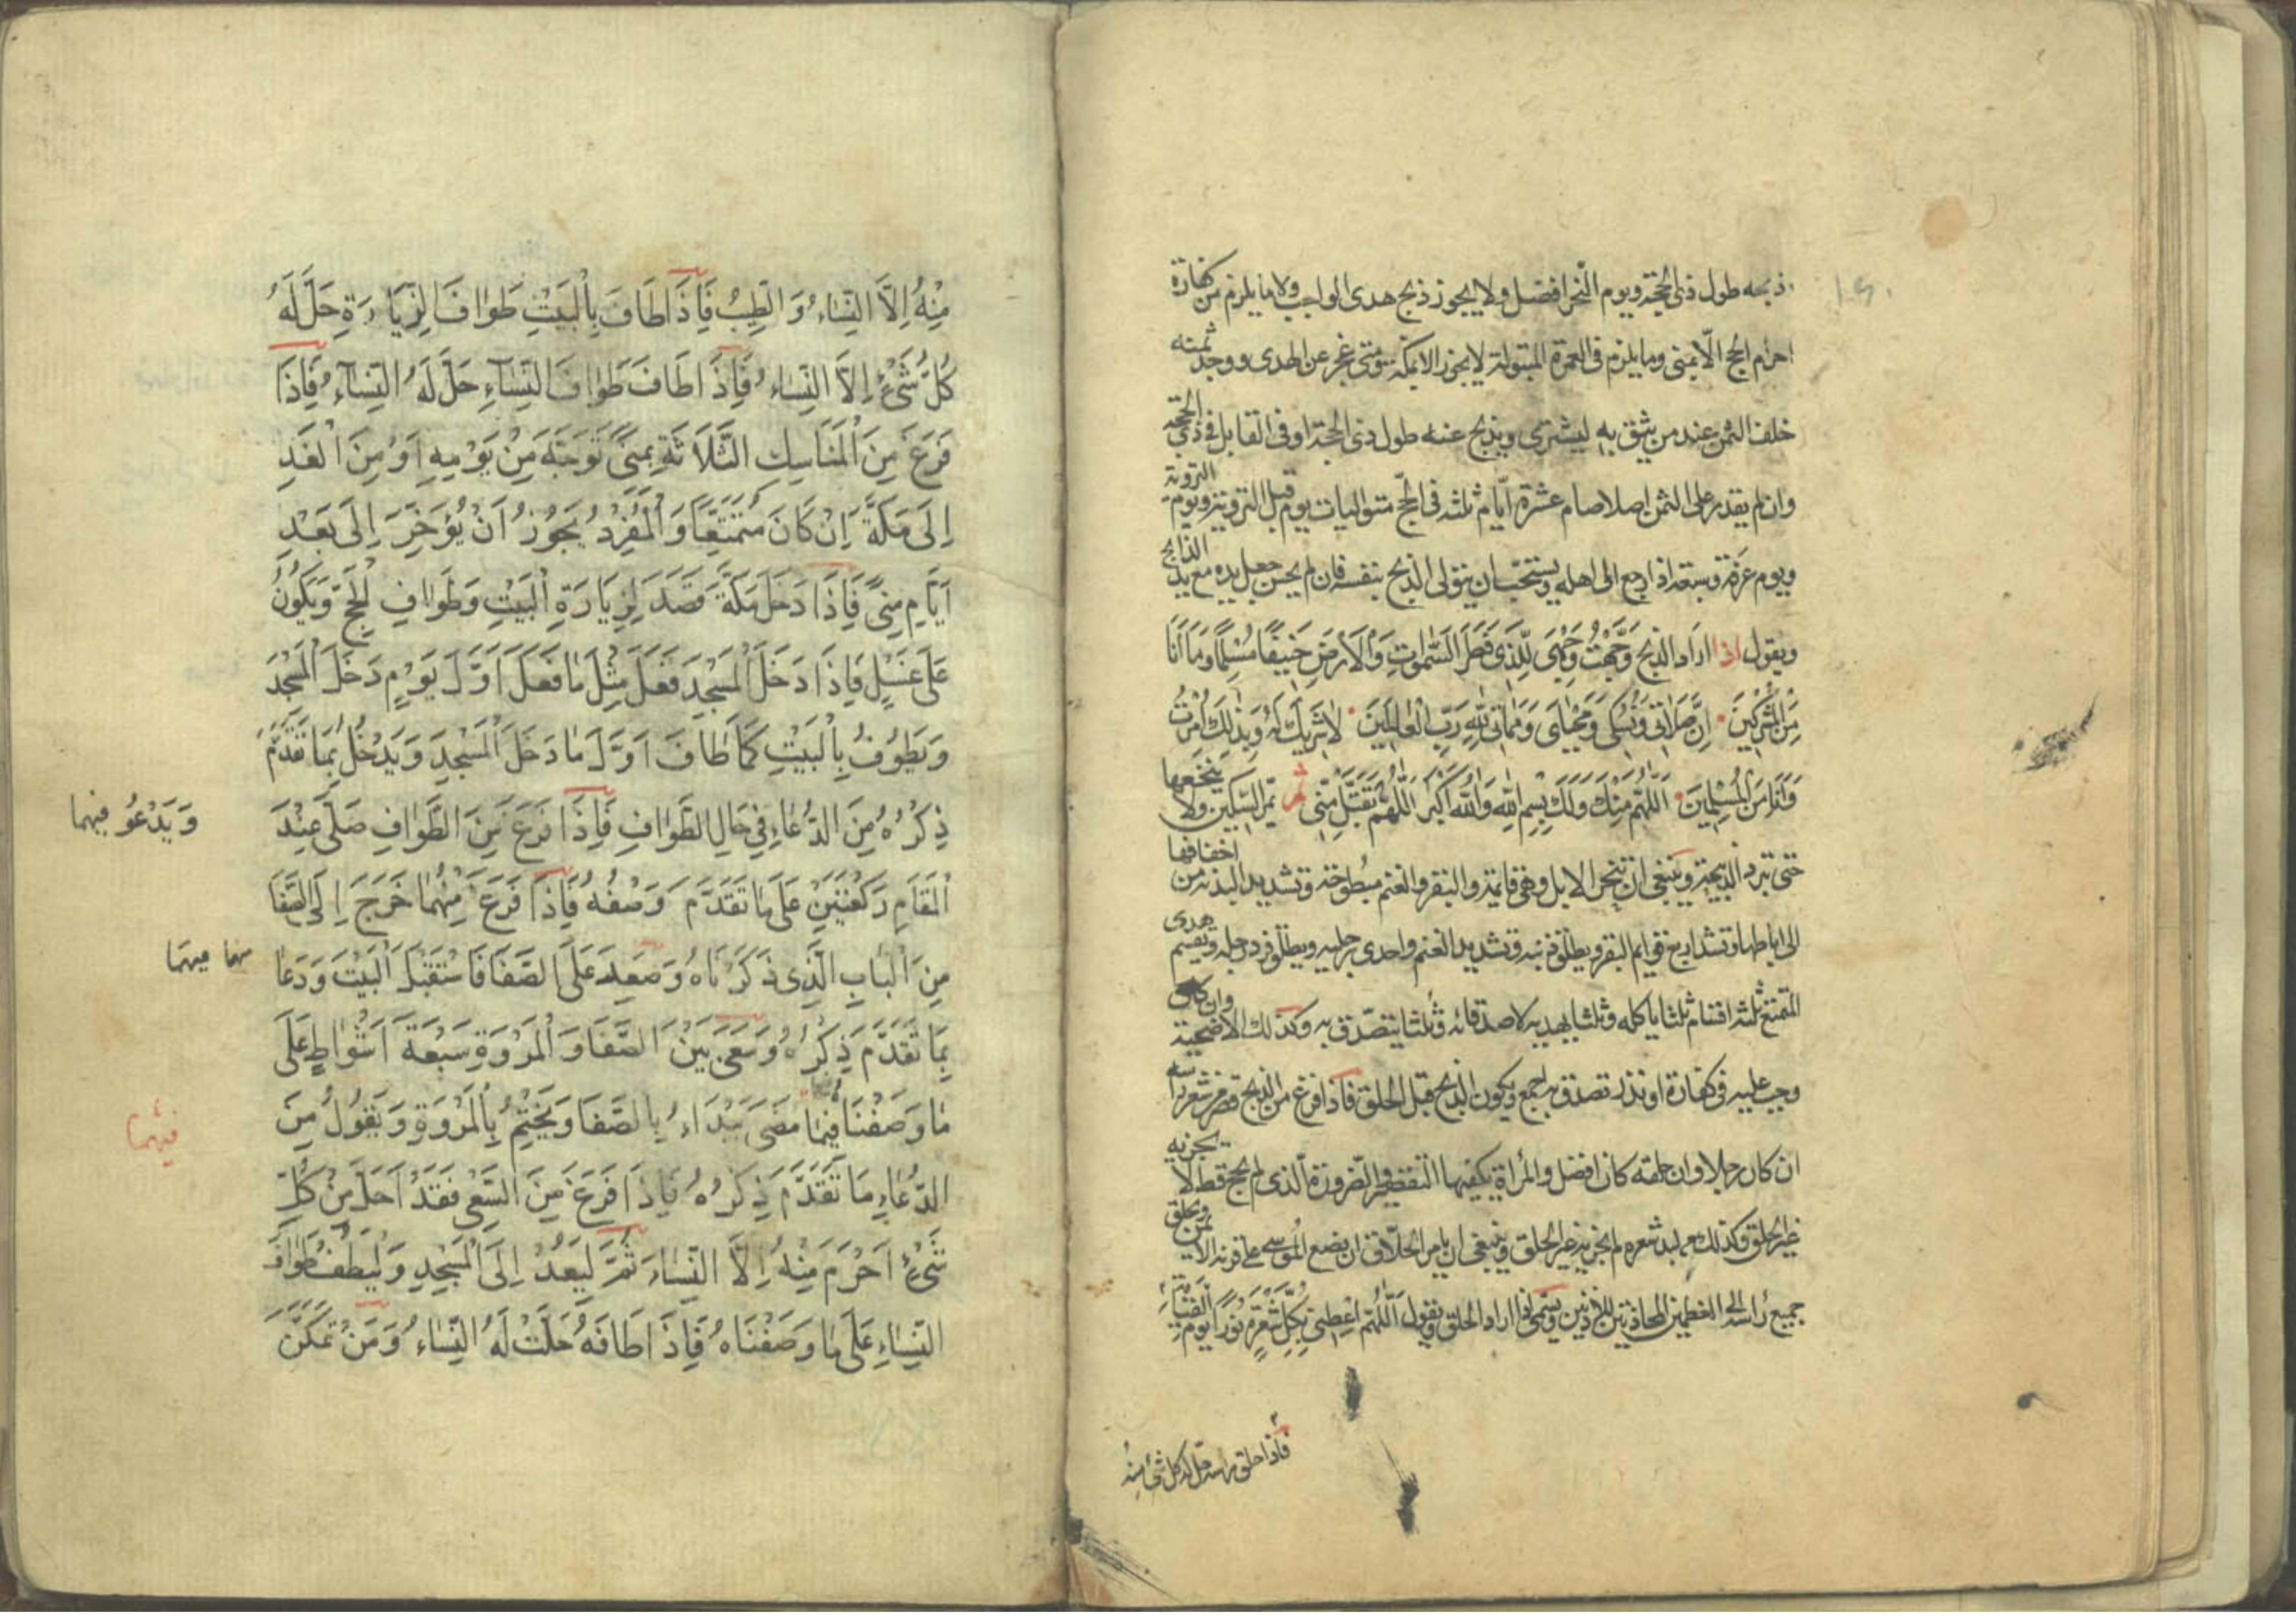 ذبحه طول ذي الحجة ويوم النحر افضل ولا يجوز ذبح هدى الواجب ولا ما يلزم من كفارة
احرام الحج الّا بمنى وما يلزم فى العمرة المبتولة لا يجوز الا بمكة ومتى عجز عن الهدى ووجد ثمنه
خلف الثمن عند من يثق به ليشترى ويذبح عنه طول ذى الحجة او فى القابل في ذي الحجة
وان لم يقدر على الثمن اصلا صام عشرة ايّام ثلثة فى الحجّ متواليات يوم قبل التروية ويوم التروية
ويوم عرفة وسبعة اذا رجع الى اهله ويستحبّ ان يتولى الذبح بنفسه فان لم يحسن جعل يده مع يد الذابح
ويقول اذا اراد الذبح وَجَّهْتُ وَجْهِىَ لِلَّذِى فَطَرَ السَّمٰوٰاتِ وَالْاَرْضَ حَنِيفًا مُسْلِمًا وَمَا اَنَا
مِنَ الْمُشْرِكِينَ اِنَّ صَلَاتِى وَنُسُكِى وَمَحْيَاىَ وَمَمَاتِى لِلّٰهِ رَبِّ الْعٰالَمِينَ لٰا شَرِيكَ لَهُ وَبِذٰلِكَ اُمِرْتُ
وَاَنَا مِنَ الْمُسْلِمِينَ اَللّٰهُمَّ مِنْكَ وَلَكَ بِسْمِ اللّٰهِ وَاللّٰهُ اَكْبَرُ اَللّٰهُمَّ تَقَبَّلْ مِنّى ثم يمّر السّكين ولا ينخعها
حتى تبرد الذبيحة وينبغى ان ينحر الابل وهى قايمة والبقر والغنم مبطوحة وتشد يد البدنة من اخفافها
الى اباطها وتشد اربع قوايم البقر ويطلق ذنبه وتشد يد الغنم واحدى رجليه ويطلق فرد رجله ويقسم هدى
المتمتع ثلثة اقسام ثلثا ياكله وثلثا يهديه لاصدقائه وثلثا يتصدّق به وكذلك الاضحية وان كان
وجب عليه فى كفارة او نذر تصدق بالجمع ويكون الذبح قبل الحلق فاذا فرغ من الذبح قصر شعر راسه
ان كان رجلا وان حلقه كان افضل والمرأة يكفيها التقصير والصّرورة الّذى لم يحج قط لا يجزيه
غير الحلق وكذلك من لبد شعره لم يجزيه غير الحلق وينبغى ان يامر الحلّاق ان يضع الموسى على قرنه الايمن ويحلق
جميع راسه الى العظمين المحاذيين للاذنين ويسمى اذا اراد الحلق ويقول اَللّٰهُمَّ اَعْطِنِى بِكُلِّ شَعْرَةٍ نُورًا يَوْمَ الْقِيٰمَةِ
فاذا حلق راسه حلّ له كل شئ منه
مِنْهُ اِلَّا النِّسٰاءُ وَالطِّيبُ فَاِذَا طَافَ بِالْبَيْتِ طَوَافَ الزِّيَارَةِ حَلَّ لَهُ
كُلُّ شَىْءٍ اِلَّا النِّسٰاءُ فَاِذَا طَافَ طَوَافَ النِّسٰاءِ حَلَّ لَهُ النِّسٰاءُ فَاِذَا
فَرَغَ مِنَ الْمَنَاسِكِ الثَّلَاثَةِ بِمِنًى تَوَجَّهَ مِنْ يَوْمِهِ اَوْ مِنَ الْغَدِ
اِلَى مَكَّةَ اِنْ كَانَ مُتَمَتِّعًا وَالْمُفْرِدُ يَجُوزُ اَنْ يُؤَخِّرَ اِلَى بَعْدِ
اَيَّامِ مِنًى فَاِذَا دَخَلَ مَكَّةَ قَصَدَ لِزِيَارَةِ الْبَيْتِ وَطَوَافِ الْحَجِّ وَيَكُونُ
عَلَى غُسْلٍ فَاِذَا دَخَلَ الْمَسْجِدَ فَعَلَ مِثْلَ مَا فَعَلَ اَوَّلَ يَوْمٍ دَخَلَ الْمَسْجِدَ
وَيَطُوفُ بِالْبَيْتِ كَمَا طَافَ اَوَّلَ مَا دَخَلَ الْمَسْجِدَ وَيَدْخُلُ بِمَا تَقَدَّمَ
ذِكْرُهُ مِنَ الدُّعَاءِ فِي حَالِ الطَّوَافِ فَاِذَا فَرَغَ مِنَ الطَّوَافِ صَلَّى عِنْدَ
وَيَدْعُو فيهما
الْمَقَامِ رَكْعَتَيْنِ عَلَى مَا تَقَدَّمَ وَصْفُهُ فَاِذَا فَرَغَ مِنْهُمَا خَرَجَ اِلَى الصَّفَا
مِنَ الْبَابِ الَّذِى ذَكَرْنَاهُ وَصَعِدَ عَلَى الصَّفَا فَاسْتَقْبَلَ الْبَيْتَ وَدَعَا
فيهما
بِمَا تَقَدَّمَ ذِكْرُهُ وَسَعَى بَيْنَ الصَّفَا وَالْمَرْوَةِ سَبْعَةَ اَشْوَاطٍ عَلَى
مَا وَصَفْنَا فِيمَا مَضَى يَبْدَاءُ بِالصَّفَا وَيَخْتِمُ بِالْمَرْوَةِ وَيَقُولُ مِنَ
فيهما
الدُّعَاءِ مَا تَقَدَّمَ ذِكْرُهُ فَاِذَا فَرَغَ مِنَ السَّعْىِ فَقَدْ اَحَلَّ مِنْ كُلِّ
شَىْءٍ اَحْرَمَ مِنْهُ اِلَّا النِّسَاءَ ثُمَّ لِيَعُدْ اِلَى الْمَسْجِدِ وَلْيَطُفْ طَوَافَ
النِّسَاءِ عَلَى مَا وَصَفْنَاهُ فَاِذَا طَافَهُ حَلَّتْ لَهُ النِّسَاءُ وَمَنْ تَمَكَّنَ